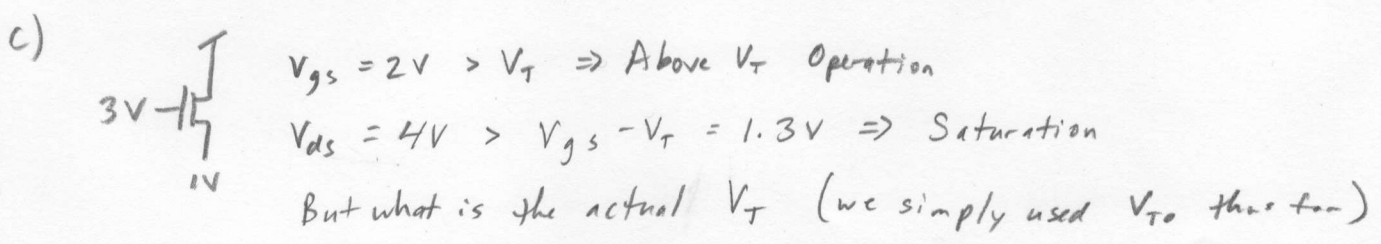 c)
Vgs = 2V > VT ⇒ Above VT Operation
3V
Vds = 4V > Vgs - VT = 1.3V ⇒ Saturation
1V
But what is the actual VT (we simply used VTo thus far)